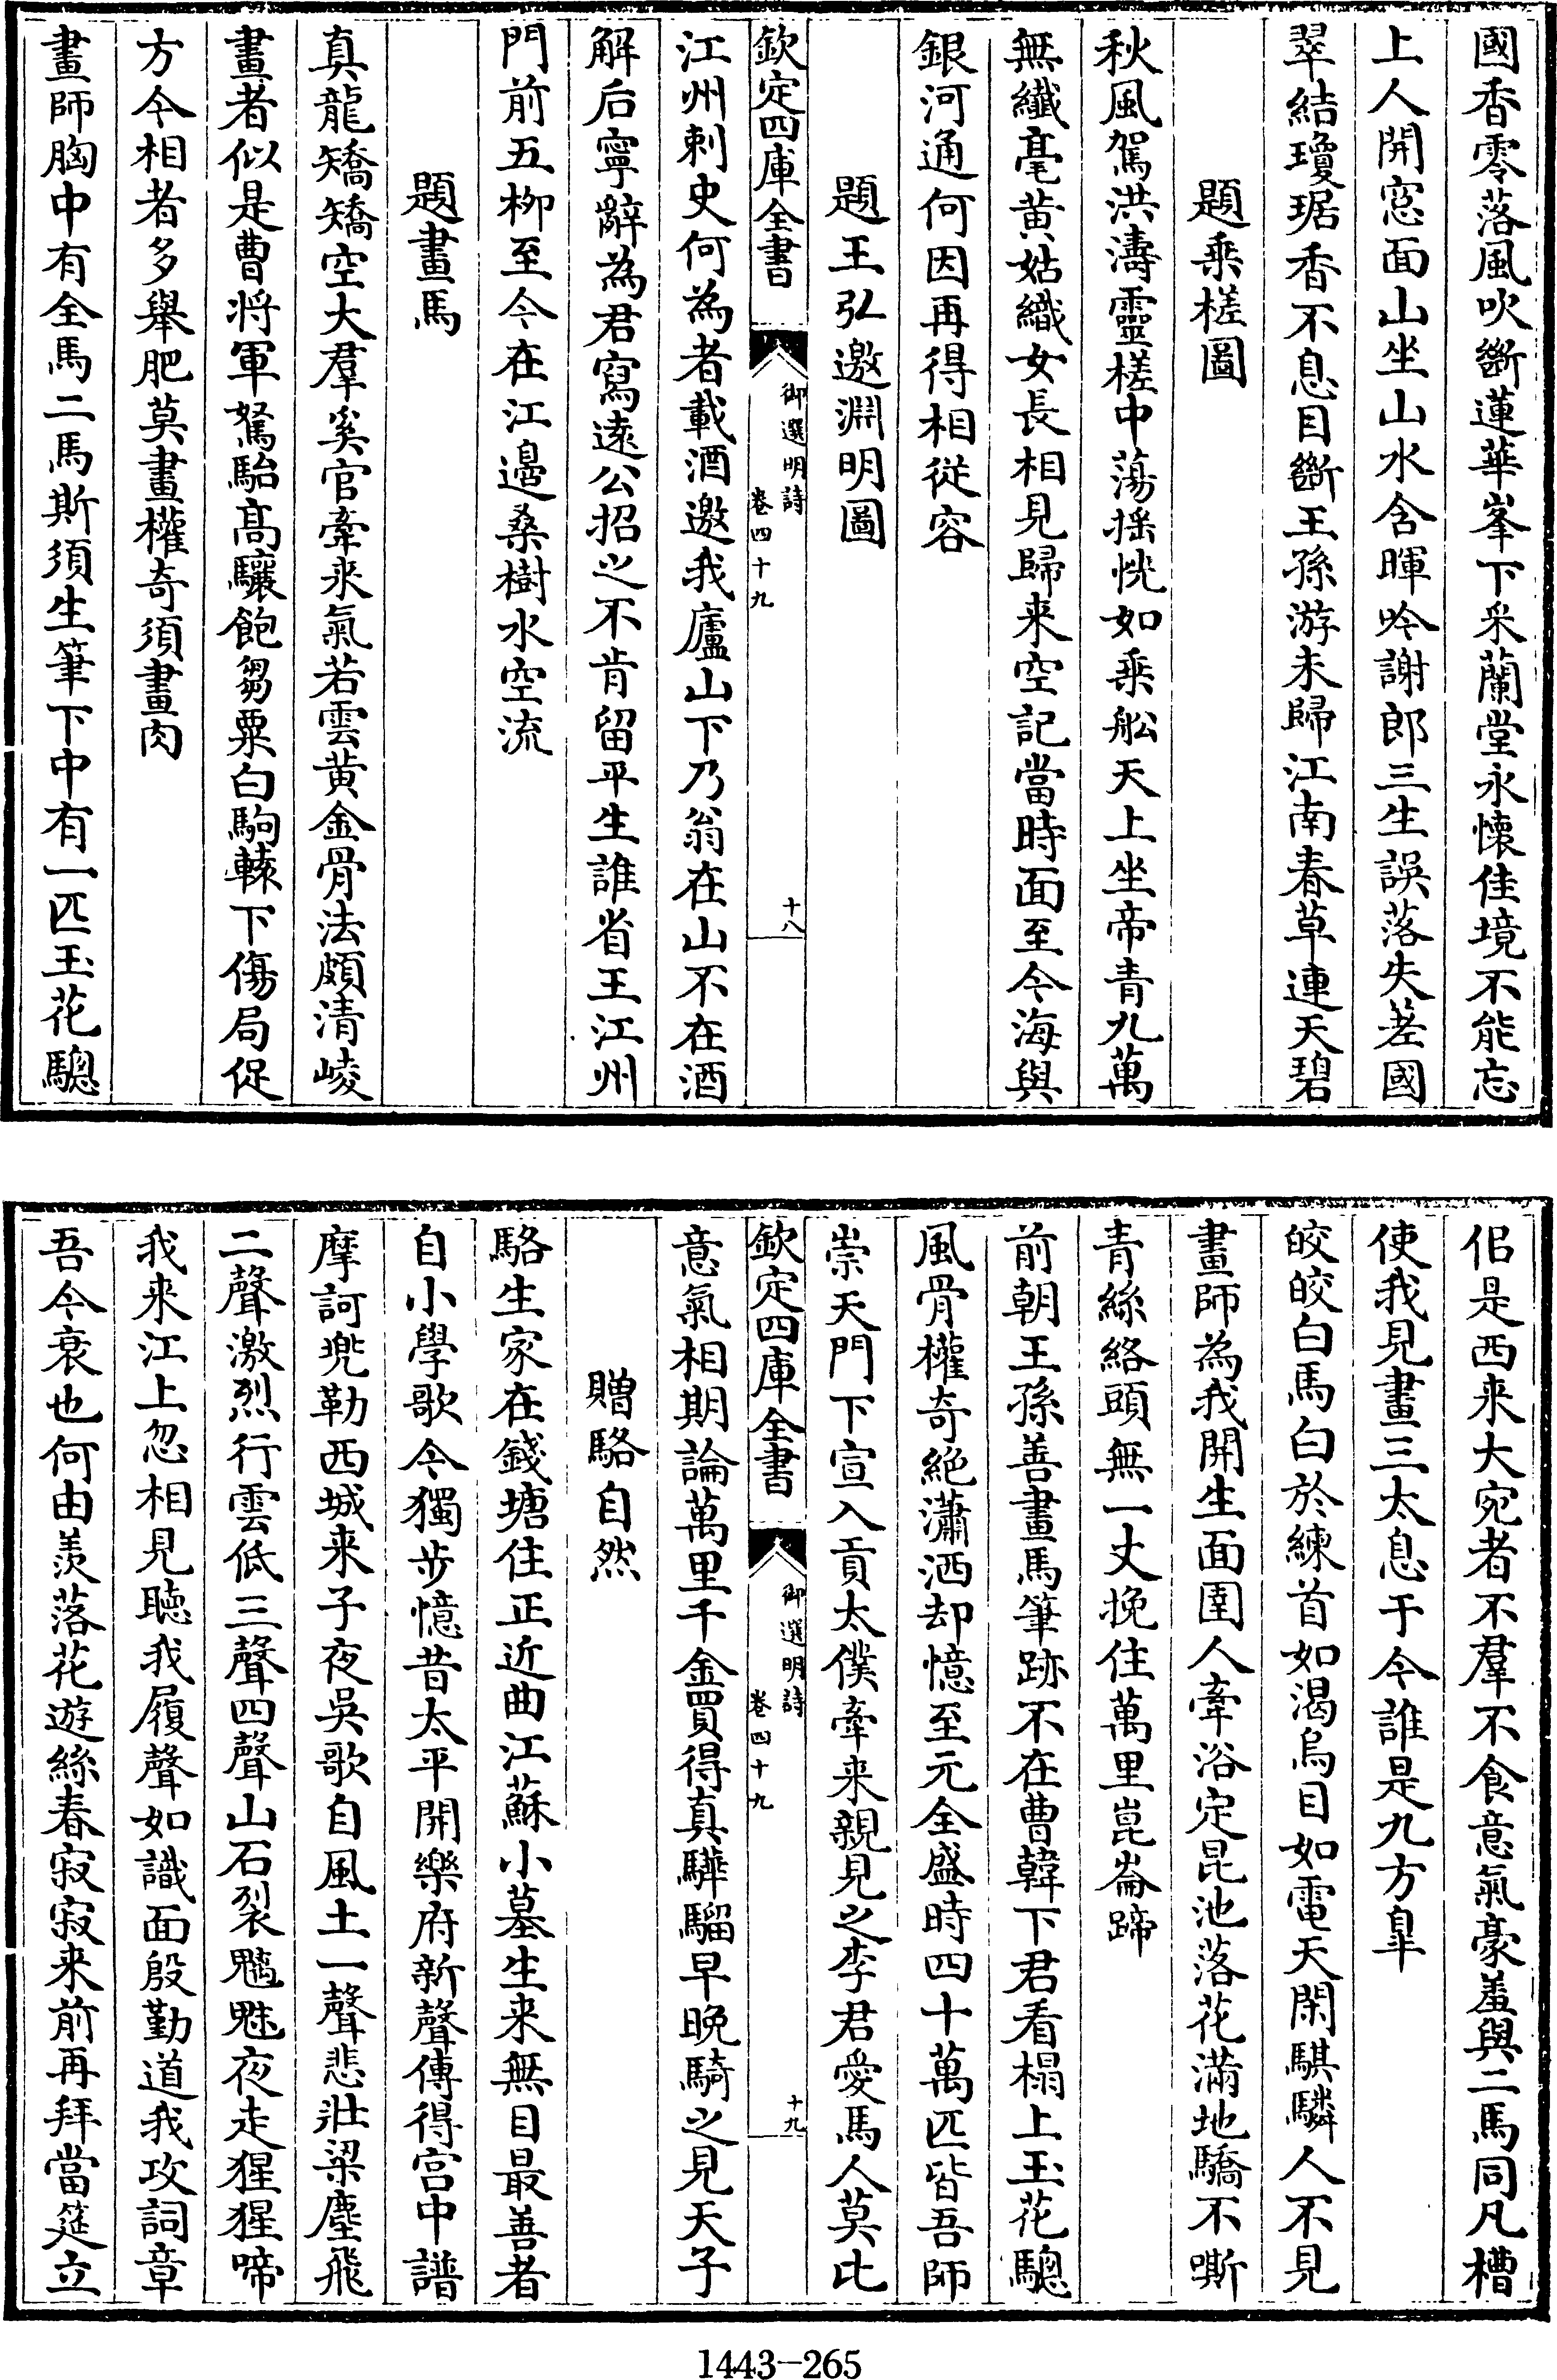 國香零落風吹斷蓮華峯下采蘭堂永懷佳境不能忘
上人開窓面山坐山水含暉吟謝郎三生誤落失差國
翠結瓊琚香不息目斷王孫游未歸江南春草連天碧
題乗槎圖
秋風駕洪濤靈槎中蕩揺恍如乗舩天上坐帝青九萬
無纎毫黄姑織女長相見歸来空記當時面至今海與
銀河通何因再得相從容
題王弘邀淵明圖
欽定四庫全書
御選明詩
卷四十九
十八
江州刺史何為者載酒邀我廬山下乃翁在山不在酒
解后寧辭為君寫遠公招之不肯留平生誰省王江州
門前五栁至今在江邉桑樹水空流
題畫馬
真龍矯矯空大羣奚官牽来氣若雲黄金骨法頗清峻
畫者似是曹将軍駑駘髙驤飽芻粟白駒轅下傷局促
方今相者多舉肥莫畫權奇須畫肉
畫師胸中有全馬二馬斯須生筆下中有一匹玉花驄
侣是西来大宛者不羣不食意氣豪羞與二馬同凡槽
使我見畫三太息于今誰是九方臯
皎皎白馬白於練首如渴烏目如電天閑騏驎人不見
畫師為我開生面圉人牽浴定昆池落花滿地驕不嘶
青絲絡頭無一丈挽住萬里崑崙蹄
前朝王孫善畫馬筆跡不在曹韓下君看榻上玉花驄
風骨權竒絶瀟洒却憶至元全盛時四十萬匹皆吾師
崇天門下宣入貢太僕牽来親見之李君愛馬人莫比
欽定四庫全書
御選明詩
卷四十九
十九
意氣相期論萬里千金買得真驊騮早晚騎之見天子
贈駱自然
駱生家在錢塘住正近曲江蘇小墓生来無目最善者
自小學歌今獨步憶昔太平開樂府新聲傳得宫中譜
摩訶兠勒西城来子夜吳歌自風土一聲悲壯梁塵飛
二聲激烈行雲低三聲四聲山石裂魑魅夜走猩猩啼
我来江上忽相見聴我履聲如識面殷勤道我攻詞章
吾今衰也何由羡落花遊絲春寂寂来前再拜當筵立
1443-265